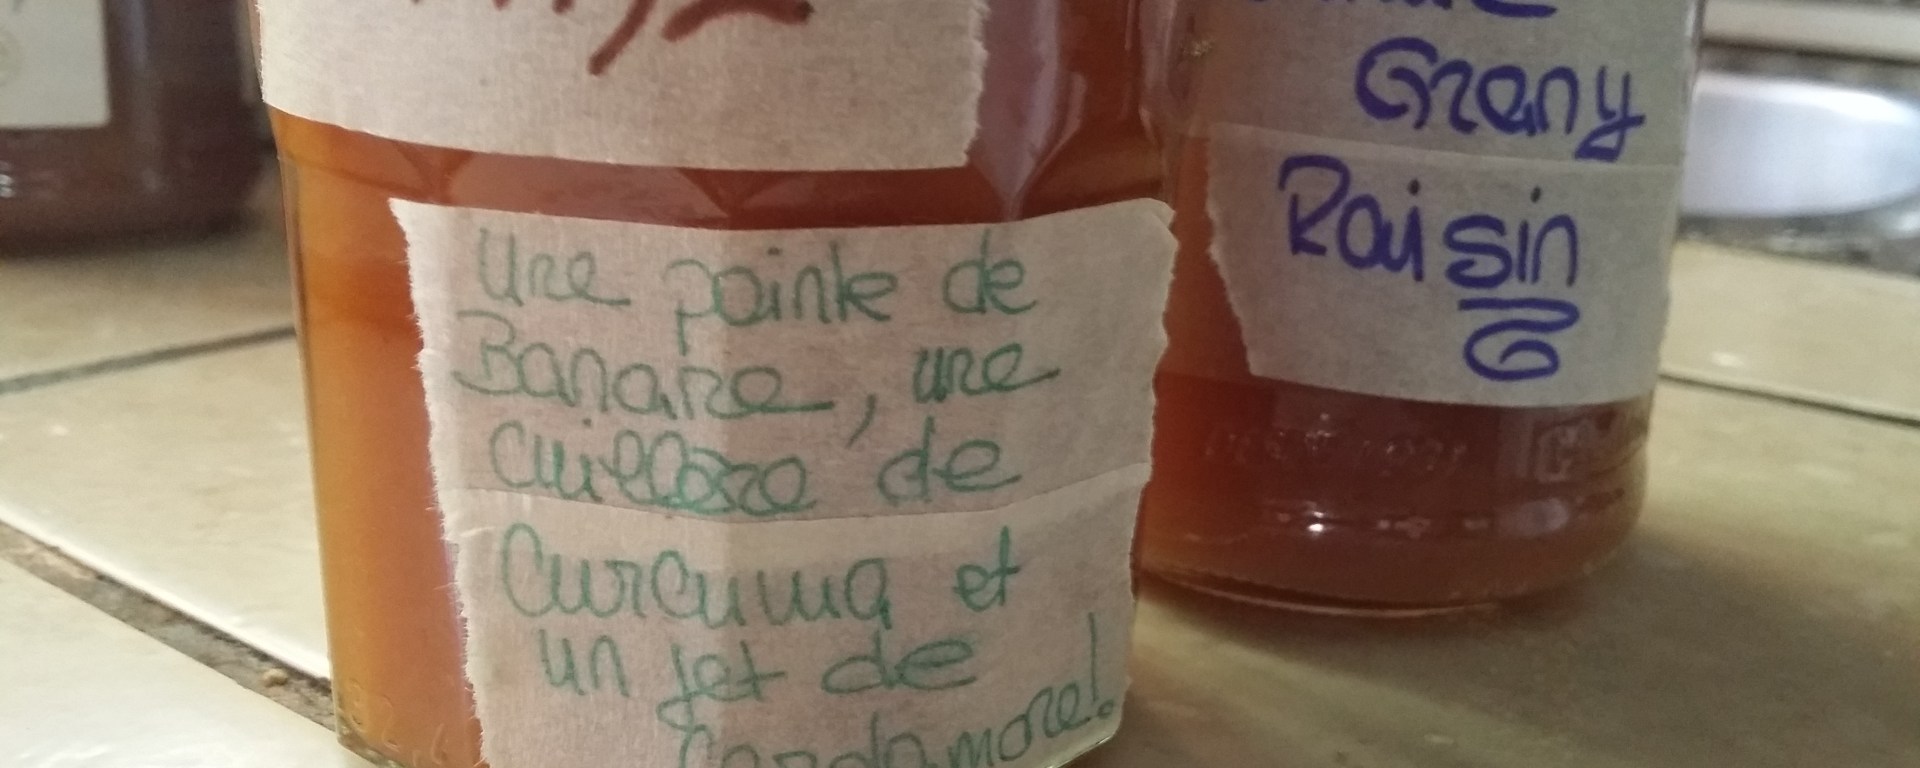 Une pointe de
Banane, une
cuillère de
Curcuma et
un jet de
Cardamone!
Grany
Raisin